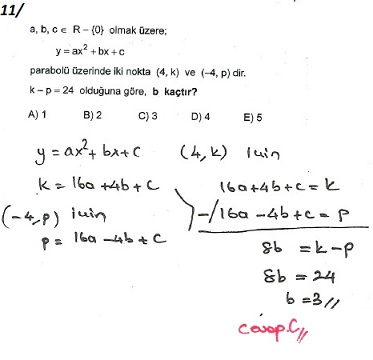 11/
a, b, c ∈ R – {0} olmak üzere;
y = ax² + bx + c
parabolü üzerinde iki nokta (4, k) ve (–4, p) dir.
k – p = 24 olduğuna göre, b kaçtır?
A) 1 B) 2 C) 3 D) 4 E) 5
y = ax² + bx + c (4, k) için
k = 16a + 4b + c
16a + 4b + c = k
(-4, p) için
-/16a - 4b + c = p
p = 16a - 4b + c
8b = k - p
8b = 24
b = 3 //
cevap C //